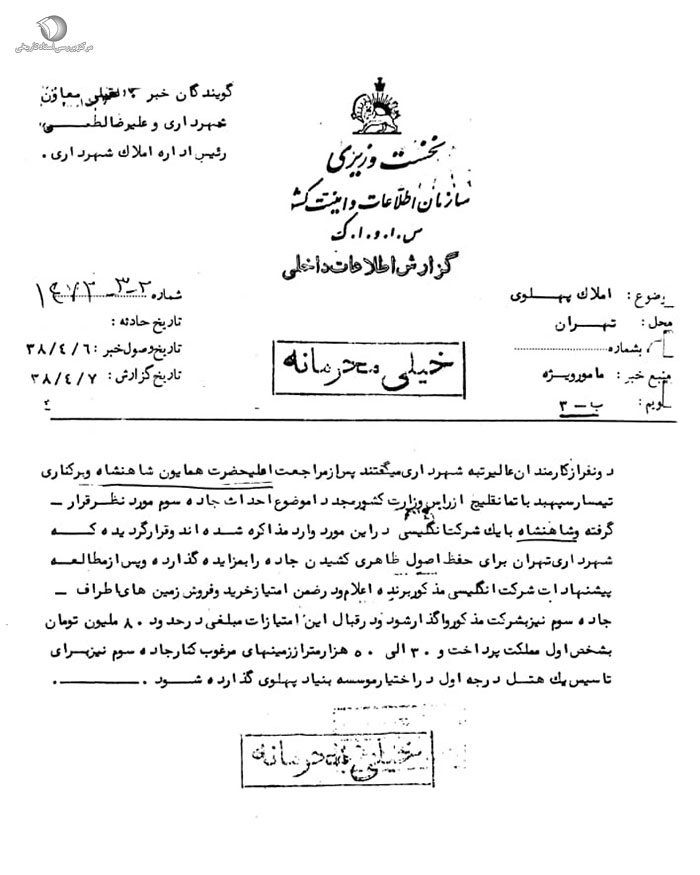 مرکز بررسی اسناد تاریخی
گویندگان خبر معاون
شهرداری و علیرضا
رئیس اداره املاك شهرداری .
نخست وزیری
سازمان اطلاعات و امنیت کشور
س . ا . و . ا . ک
گزارش اطلاعات داخلی
موضوع : املاك پهلوی
محل : تهران
بشماره
منبع خبر : مامور ویژه
تقویم : ب - ۳
شماره
تاریخ حادثه :
تاریخ وصول خبر : ۳۸/۴/۶
تاریخ گزارش : ۳۸/۴/۷
خیلی محرمانه
دو نفر از کارمندان عالیرتبه شهرداری میگفتند پس از مراجعت اعلیحضرت همایون شاهنشاه وبرکناری
تیمسار سپهبد باتمانقلیچ از راس وزارت کشور مجددا موضوع احداث جاده سوم مورد نظر قرار ـ
گرفته وشاهنشاه با یك شرکت انگلیسی در این مورد وارد مذاکره شده اند و قرار گردیده که
شهرداری تهران برای حفظ اصول ظاهری کشیدن جاده را بمزایده گذارده و پس از مطالعه
پیشنهادات شرکت انگلیسی مذکور برنده اعلام و در ضمن امتیاز خرید و فروش زمین های اطراف ـ
جاده سوم نیز بشرکت مذکور واگذار شود و در قبال این امتیازات مبلغی در حدود ۸۰ ملیون تومان
بشخص اول مملکت پرداخت و ۳۰ الی ۵۰ هزار متر از زمینهای مرغوب کنار جاده سوم نیز برای
تاسیس یك هتل درجه اول در اختیار موسسه بنیاد پهلوی گذارده شود .
خیلی محرمانه